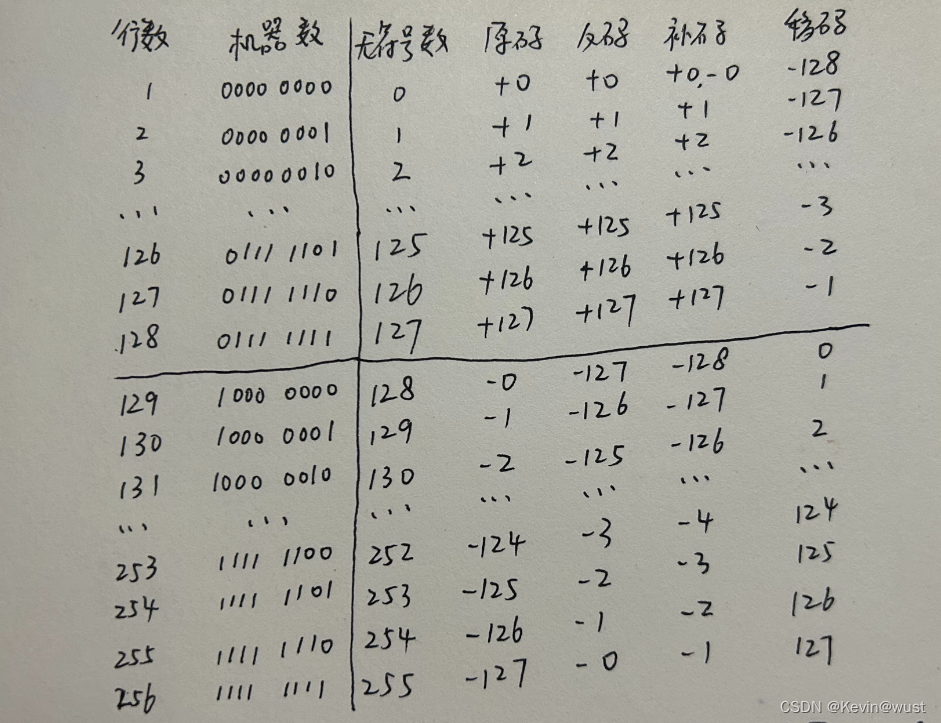 行数 机器数 无符号数 原码 反码 补码 移码
1 0000 0000 0 +0 +0 +0,-0 -128
2 0000 0001 1 +1 +1 +1 -127
3 0000 0010 2 +2 +2 +2 -126
... ... ... ... ... ... ...
126 0111 1101 125 +125 +125 +125 -3
127 0111 1110 126 +126 +126 +126 -2
128 0111 1111 127 +127 +127 +127 -1
129 1000 0000 128 -0 -127 -128 0
130 1000 0001 129 -1 -126 -127 1
131 1000 0010 130 -2 -125 -126 2
... ... ... ... ... ... ...
253 1111 1100 252 -124 -3 -4 124
254 1111 1101 253 -125 -2 -3 125
255 1111 1110 254 -126 -1 -2 126
256 1111 1111 255 -127 -0 -1 127
CSDN @Kevin@wust